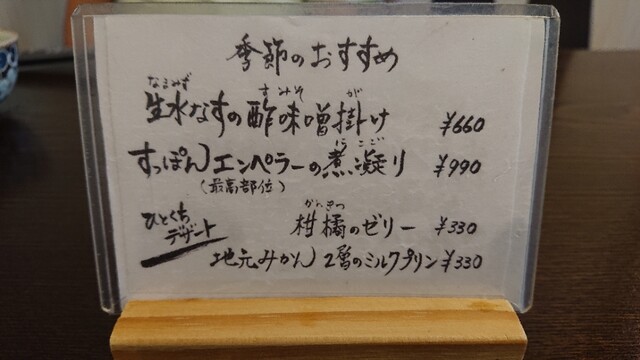 季節のおすすめ
なまみず すみそ が
生水なすの酢味噌掛け ¥660
にこご
すっぽんエンペラーの煮凝り ¥990
(最高部位)
ひとくち
デザート
かんきつ
柑橘のゼリー ¥330
地元みかん2層のミルクプリン ¥330